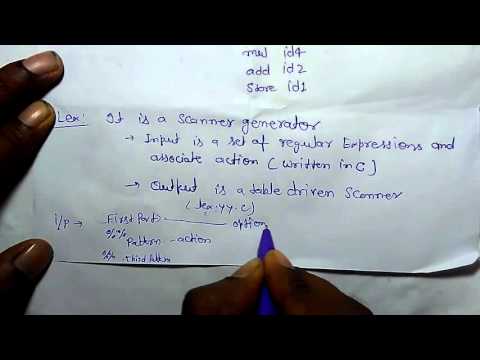 mul id4
add id2
Store id1
Lex: It is a Scanner generator
→ Input is a set of regular Expressions and
associate action (written in C)
→ Output is a table driven Scanner
(lex.yy.c)
i/p → First Part ——— option
%% Pattern - action
%% third Pattern